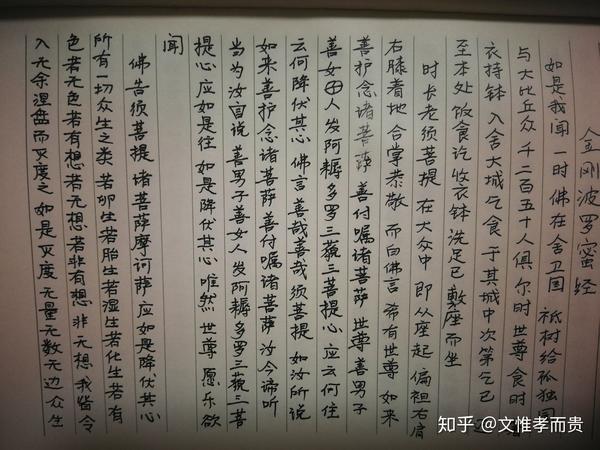 金刚波罗蜜经
如是我闻 一时 佛在舍卫国 祇树给孤独园
与大比丘众 千二百五十人俱 尔时世尊食时
衣持钵 入舍大城乞食 于其城中次第乞已
至本处 饭食讫 收衣钵 洗足已 敷座而坐
时长老须菩提 在大众中 即从座起 偏袒右肩
右膝着地 合掌恭敬 而白佛言 希有世尊 如来
善护念诸菩萨 善付嘱诸菩萨 世尊善男子
善女人 发阿耨多罗三藐三菩提心 应云何住
云何降伏其心 佛言 善哉善哉 须菩提 如汝所说
如来善护念诸菩萨 善付嘱诸菩萨 汝今谛听
当为汝宣说 善男子善女人 发阿耨多罗三藐三菩
提心 应如是住 如是降伏其心 唯然 世尊 愿乐欲
闻
佛告须菩提 诸菩萨摩诃萨 应如是降伏其心
所有一切众生之类 若卵生若胎生若湿生若化生若有
色若无色若有想若无想若非有想非无想我皆令
入无余涅盘而灭度之 如是灭度无量无数无边众生
知乎 @文惟孝而贵